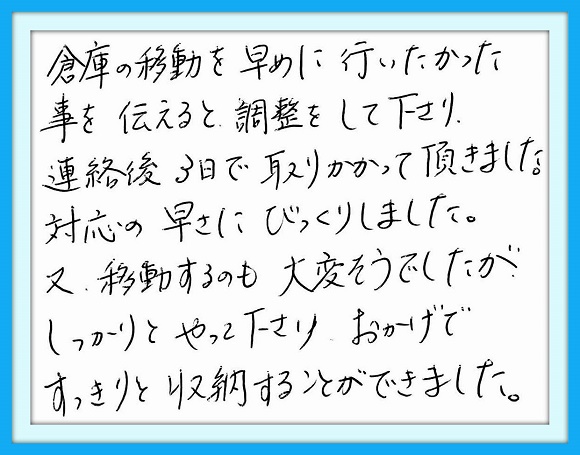 倉庫の移動を早めに行いたかった
事を伝えると、調整をして下さり、
連絡後3日で取りかかって頂きました。
対応の早さにびっくりしました。
又、移動するのも大変そうでしたが、
しっかりとやって下さり、おかげで
すっきりと収納することができました。